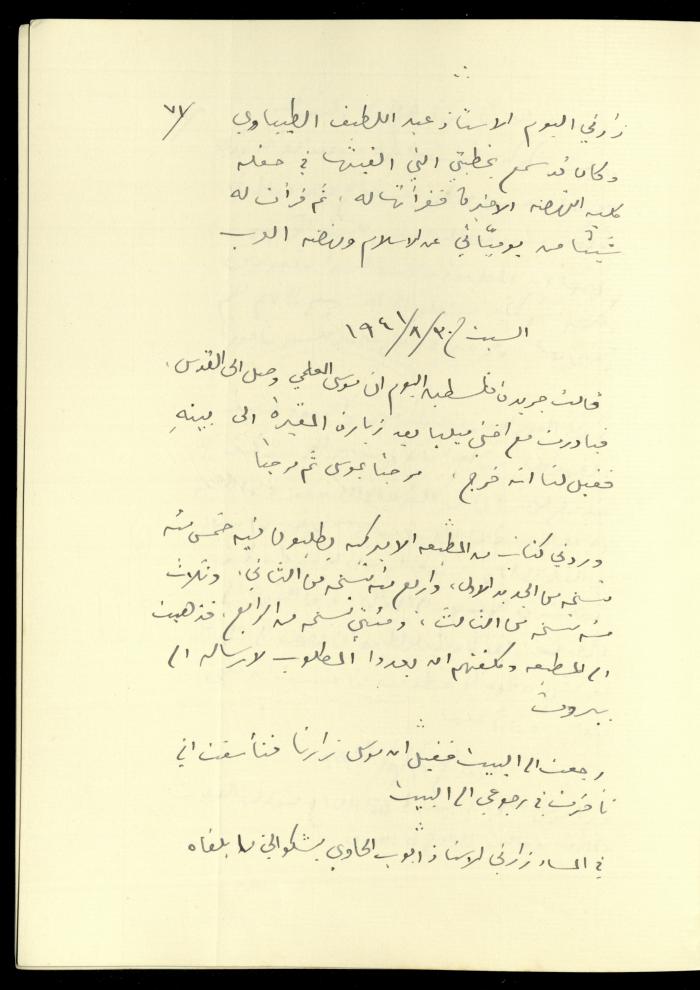 ٧١/
زارني اليوم الاستاذ عبد اللطيف الطيباوي
وكان قد سمع بخطبتي التي القيتها في حفلة
كلية النهضة الاخيرة فقرأتها له، ثم قرأت له
شيئا من يومياتي عن الاسلام ونهضة العرب
السبت ٣٠/٨/١٩٤١
قالت جريدة فلسطين اليوم ان موسى العلمي وصل الى القدس.
فبادرت مع اختي ميليا بعد زيارة المقبرة الى بيته
فقيل لنا انه خرج. مرحبًا بموسى ثم مرحبًا
وردني كتاب من المطبعة الاميركية يطلبون فيه خمس مئة
نسخة من الجديد الاول، واربع مئة نسخة من الثاني، وثلاث
مئة نسخة من الثالث، ومئتي نسخة من الرابع. فذهبت
الى المطبعة وكلفتهم ان يعدوا المطلوب لارساله الى
بيروت
رجعت الى البيت فقيل ان موسى زارنا فتأسفت اني
تأخرت في رجوعي الى البيت
في المساء زارني الاستاذ ايوب الحاوي يشكو الي ما يلقاه